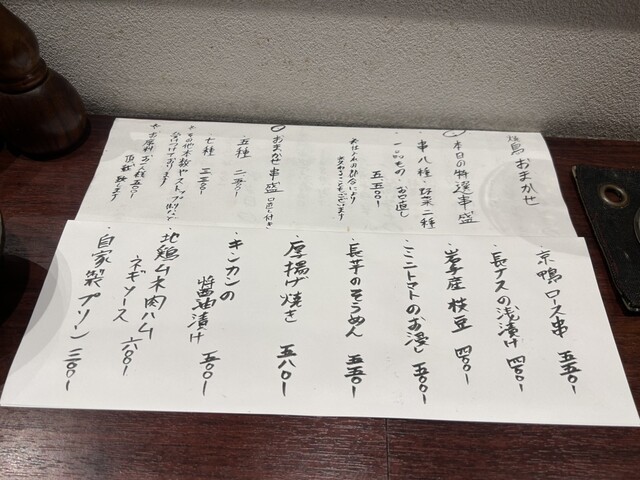 焼鳥おまかせ
本日の特選串盛
串八種・野菜二種
一品もの・お口直し
五、五〇〇-
※仕入れの都合により
変わることもございます
おまかせ串盛 口直し付き
・五種 二、二〇〇-
七種
その他本数やストップ制など
受けつけております
※お席料お一人様五五〇-
頂戴致します
・京鴨ロース串 五五〇-
・長ナスの浅漬け 四〇〇-
・岩手産 枝豆 四〇〇-
・ミニトマトのお浸し 五〇〇-
・長芋のそうめん 五五〇-
・厚揚げ焼き 五八〇-
・キンカンの
醤油漬け 五〇〇-
・地鶏ムネ肉ハム
ネギソース 六〇〇-
・自家製プリン 三〇〇-